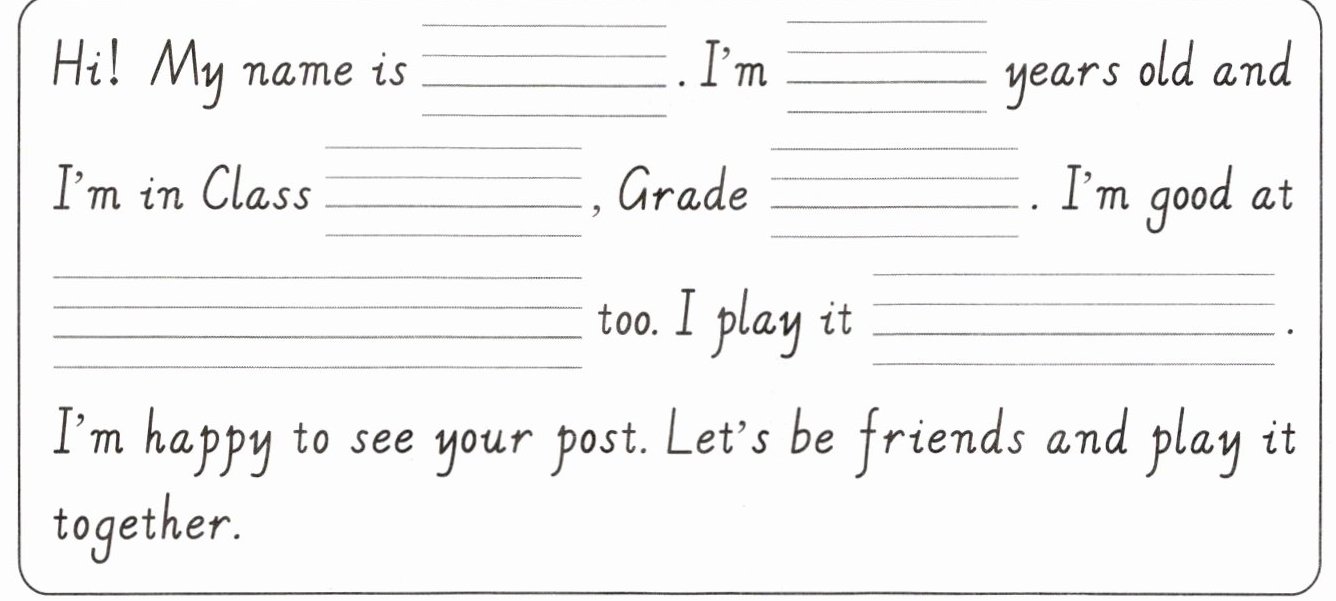 Hi! My name is . I'm years old and
I'm in Class , Grade . I'm good at
too. I play it .
I'm happy to see your post. Let's be friends and play it
together.